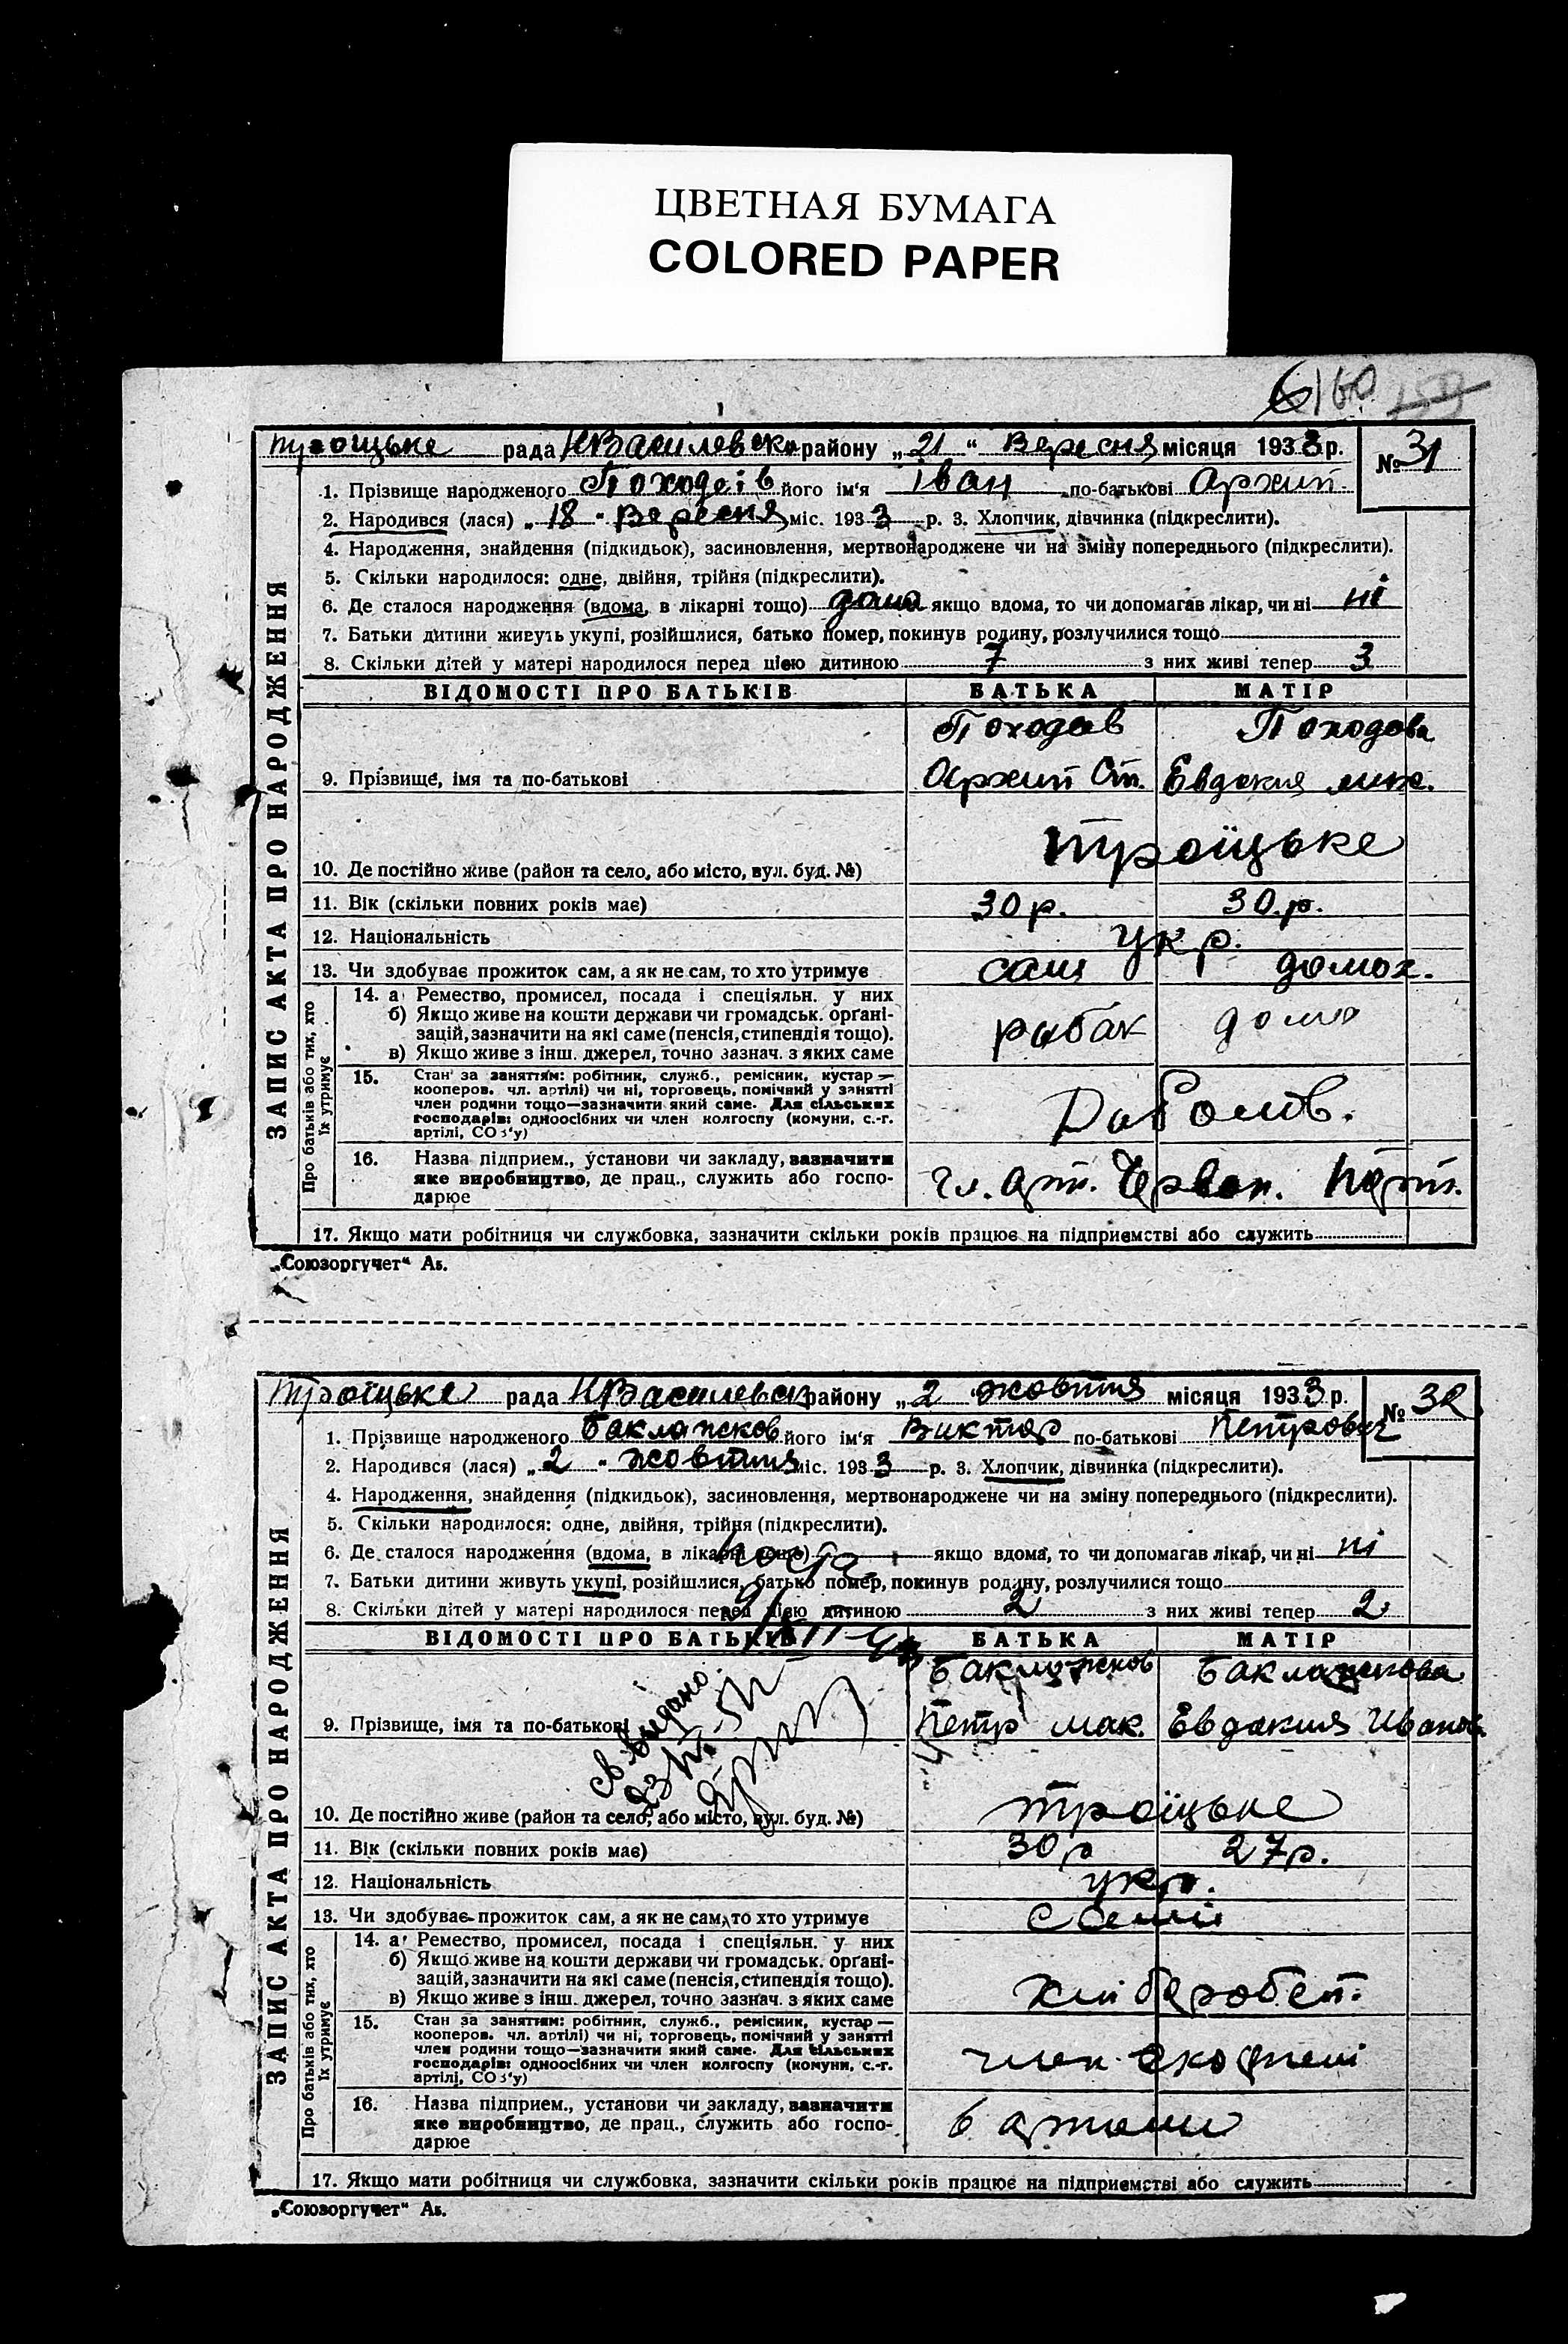 ЦВЕТНАЯ БУМАГА
COLORED PAPER
160 159
ЗАПИС АКТА ПРО НАРОДЖЕННЯ
Троіцьке рада НВасилевско району „21“ Вересня місяця 1933 р. № 31
1. Прізвище народженого Походеів його ім'я Іван по-батькові Архип.
2. Народився (лася) „18“ Вересня міс. 1933 р. 3. Хлопчик, дівчинка (підкреслити).
4. Народження, знайдення (підкидьок), засиновлення, мертвонароджене чи на зміну попереднього (підкреслити).
5. Скільки народилося: одне, двійня, трійня (підкреслити).
6. Де сталося народження (вдома, в лікарні тощо) дома якщо вдома, то чи допомагав лікар, чи ні ні
7. Батьки дитини живуть укупі, розійшлися, батько помер, покинув родину, розлучилися тощо
8. Скільки дітей у матері народилося перед цією дитиною 7 з них живі тепер 3
ВІДОМОСТІ ПРО БАТЬКІВ БАТЬКА МАТІР
Походєв Походова
9. Прізвище, імя та по-батькові Архип Ст. Евдокия мих.
10. Де постійно живе (район та село, або місто, вул. буд. №) Троїцьке
11. Вік (скільки повних років має) 30 р. 30 р.
12. Національність укр.
13. Чи здобуває прожиток сам, а як не сам, то хто утримує сам домох.
Про батьків або тих, хто їх утримує
14. а) Ремество, промисел, посада і спеціяльн. у них
б) Якщо живе на кошти держави чи громадськ. організацій, зазначити на які саме (пенсія, стипендія тощо).
в) Якщо живе з інш. джерел, точно зазнач. з яких саме
рыбак дома
15. Стан за заняттям: робітник, служб., ремісник, кустар —
кооперов. чл. артілі) чи ні, торговець, помічний у занятті
член родини тощо—зазначити який саме. Для сільських
господарів: одноосібних чи член колгоспу (комуни, с.-г.
артілі, СОЗ'у)
16. Назва підприєм., установи чи закладу, зазначити
яке виробництво, де прац., служить або господарює
чл. арт. Червон. Парт.
17. Якщо мати робітниця чи службовка, зазначити скільки років працює на підприємстві або служить
„Союзоргучет“ Аг.
ЗАПИС АКТА ПРО НАРОДЖЕННЯ
Троїцьке рада НВасилевск району „2“ жовтня місяця 1933 р. № 32
1. Прізвище народженого Баклажков його ім'я Виктор по-батькові Петрович
2. Народився (лася) „2“ жовтня міс. 1933 р. 3. Хлопчик, дівчинка (підкреслити).
4. Народження, знайдення (підкидьок), засиновлення, мертвонароджене чи на зміну попереднього (підкреслити).
5. Скільки народилося: одне, двійня, трійня (підкреслити).
6. Де сталося народження (вдома, в лікарні тощо) якщо вдома, то чи допомагав лікар, чи ні ні
7. Батьки дитини живуть укупі, розійшлися, батько помер, покинув родину, розлучилися тощо
8. Скільки дітей у матері народилося перед цією дитиною 2 з них живі тепер 2
ВІДОМОСТІ ПРО БАТЬКІВ БАТЬКА МАТІР
Баклажков Баклажкова
9. Прізвище, імя та по-батькові Петр мак. Евдокия Иванов
св. выдано
10. Де постійно живе (район та село, або місто, вул. буд. №) Троїцьке
11. Вік (скільки повних років має) 30 р 27 р.
12. Національність укр.
13. Чи здобуває прожиток сам, а як не сам, то хто утримує
Про батьків або тих, хто їх утримує
14. а) Ремество, промисел, посада і спеціяльн. у них
б) Якщо живе на кошти держави чи громадськ. організацій, зазначити на які саме (пенсія, стипендія тощо).
в) Якщо живе з інш. джерел, точно зазнач. з яких саме
хлібороб
15. Стан за заняттям: робітник, служб., ремісник, кустар —
кооперов. чл. артілі) чи ні, торговець, помічний у занятті
член родини тощо—зазначити який саме. Для сільських
господарів: одноосібних чи член колгоспу (комуни, с.-г.
артілі, СОЗ'у)
член
16. Назва підприєм., установи чи закладу, зазначити
яке виробництво, де прац., служить або господарює
в артели
17. Якщо мати робітниця чи службовка, зазначити скільки років працює на підприємстві або служить
„Союзоргучет“ Аг.